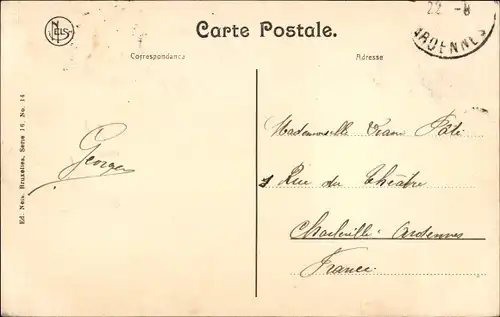 NELS
Carte Postale.
22 -8
ARDENNES
Correspondance
Adresse
Ed. Nels, Bruxelles, Serie 16, No. 14
Georges
Mademoiselle
Rue du Théâtre
Charleville. Ardennes
France.